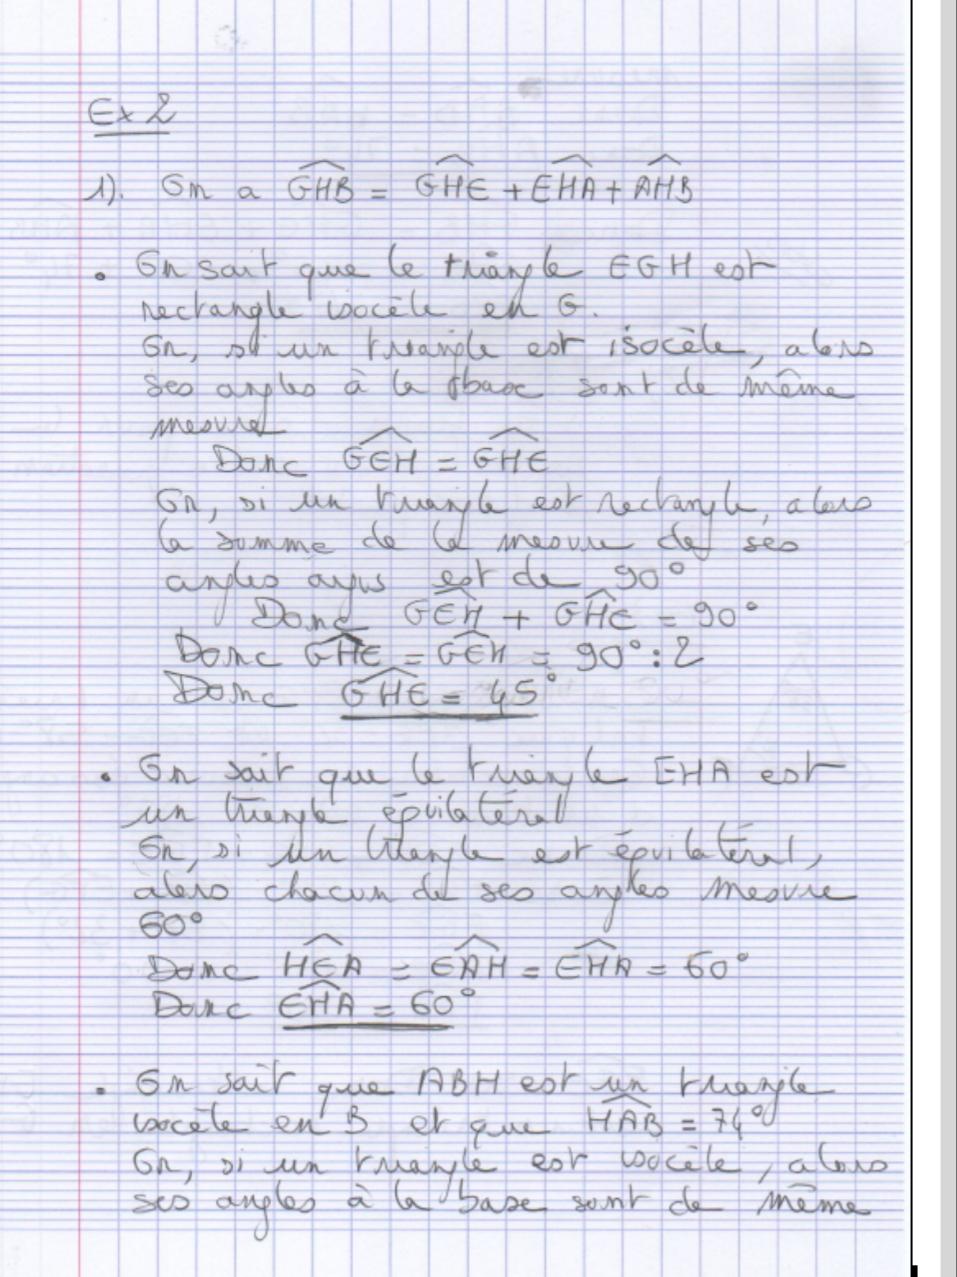 Ex 2
1). On a GHB = GHE + EHA + AHB
• On sait que le triangle EGH est
rectangle isocèle en G.
Or, si un triangle est isocèle, alors
ses angles à la base sont de même
mesure
Donc GEH = GHE
Or, si un triangle est rectangle, alors
la somme de la mesure de ses
angles aigus est de 90°
Donc GEH + GHE = 90°
Donc GHE = GEH = 90° : 2
Donc GHE = 45°
• On sait que le triangle EHA est
un triangle équilatéral
Or, si un triangle est équilatéral,
alors chacun de ses angles mesure
60°
Donc HEA = EAH = EHA = 60°
Donc EHA = 60°
• On sait que ABH est un triangle
isocèle en B et que HAB = 74°
Or, si un triangle est isocèle, alors
ses angles à la base sont de même